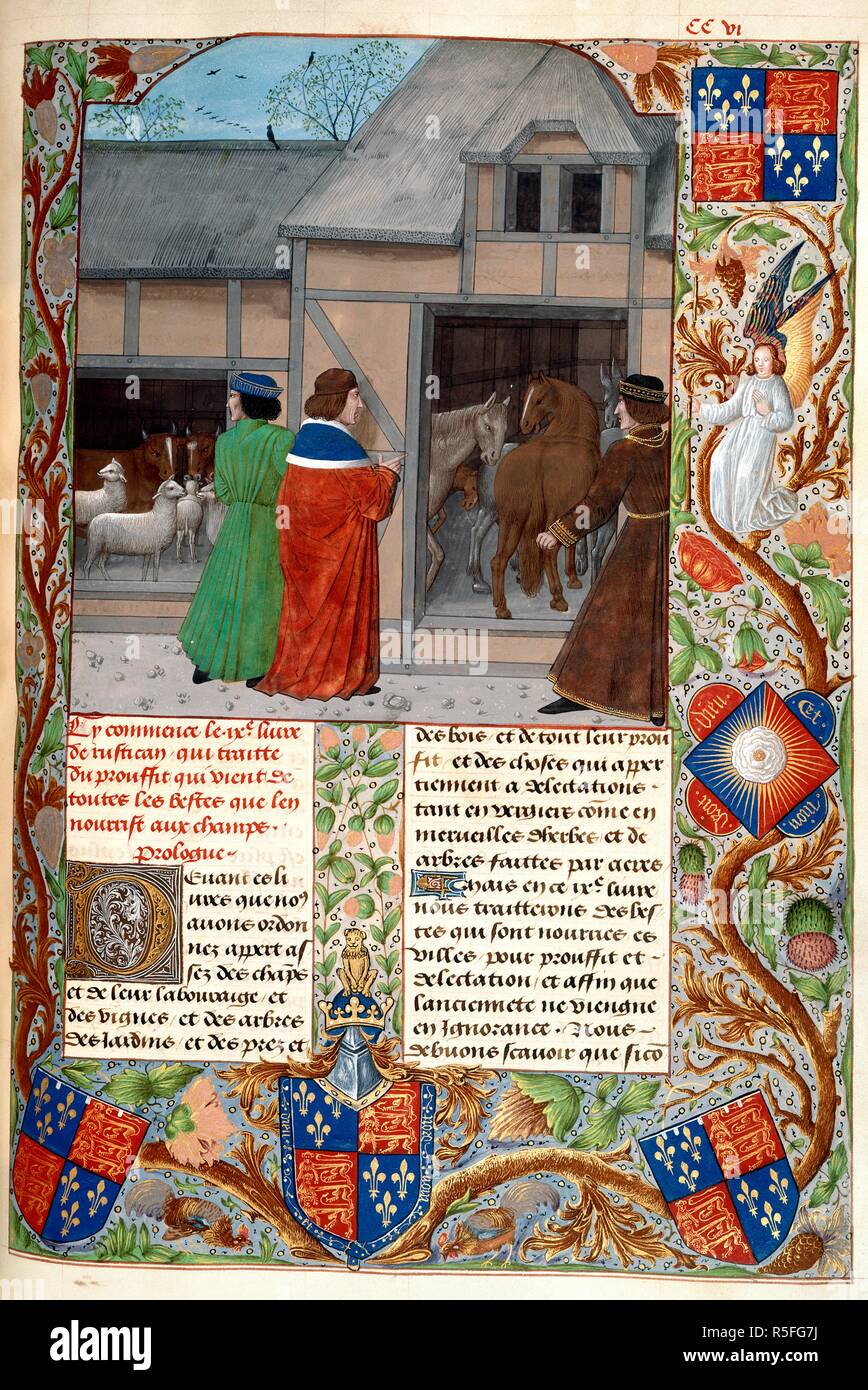 CC vi
Cy commence le .ixe. livre
de rustican / qui traitte
du prouffit qui vient de
toutes les bestes que len
nourrist aux champs .
Prologue ~
Deuant ces li
ures que nos
auons ordon
nez appert as
sez des chaps
et de leur labouraige / et
des vignes / et des arbres
des Iardins / et des prez et
des bois / et de tout leur prou
fit / et des choses qui apper
tiennent a delectations ~
tant en vergiers come en
merueilles dherbes / et de
arbres faittes par
Mais en ce ixe. liure
nous traitterons des bes
tes qui sont nourries es
villes / pour prouffit et ~
delectation / et affin que
lanciennete ne viengne
en Ignorance . Nous ~
deuons scauoir que sico
Dieu Et
Droit mon
Dieu et mon
alamy stock photo
R5FG7J
www.alamy.com